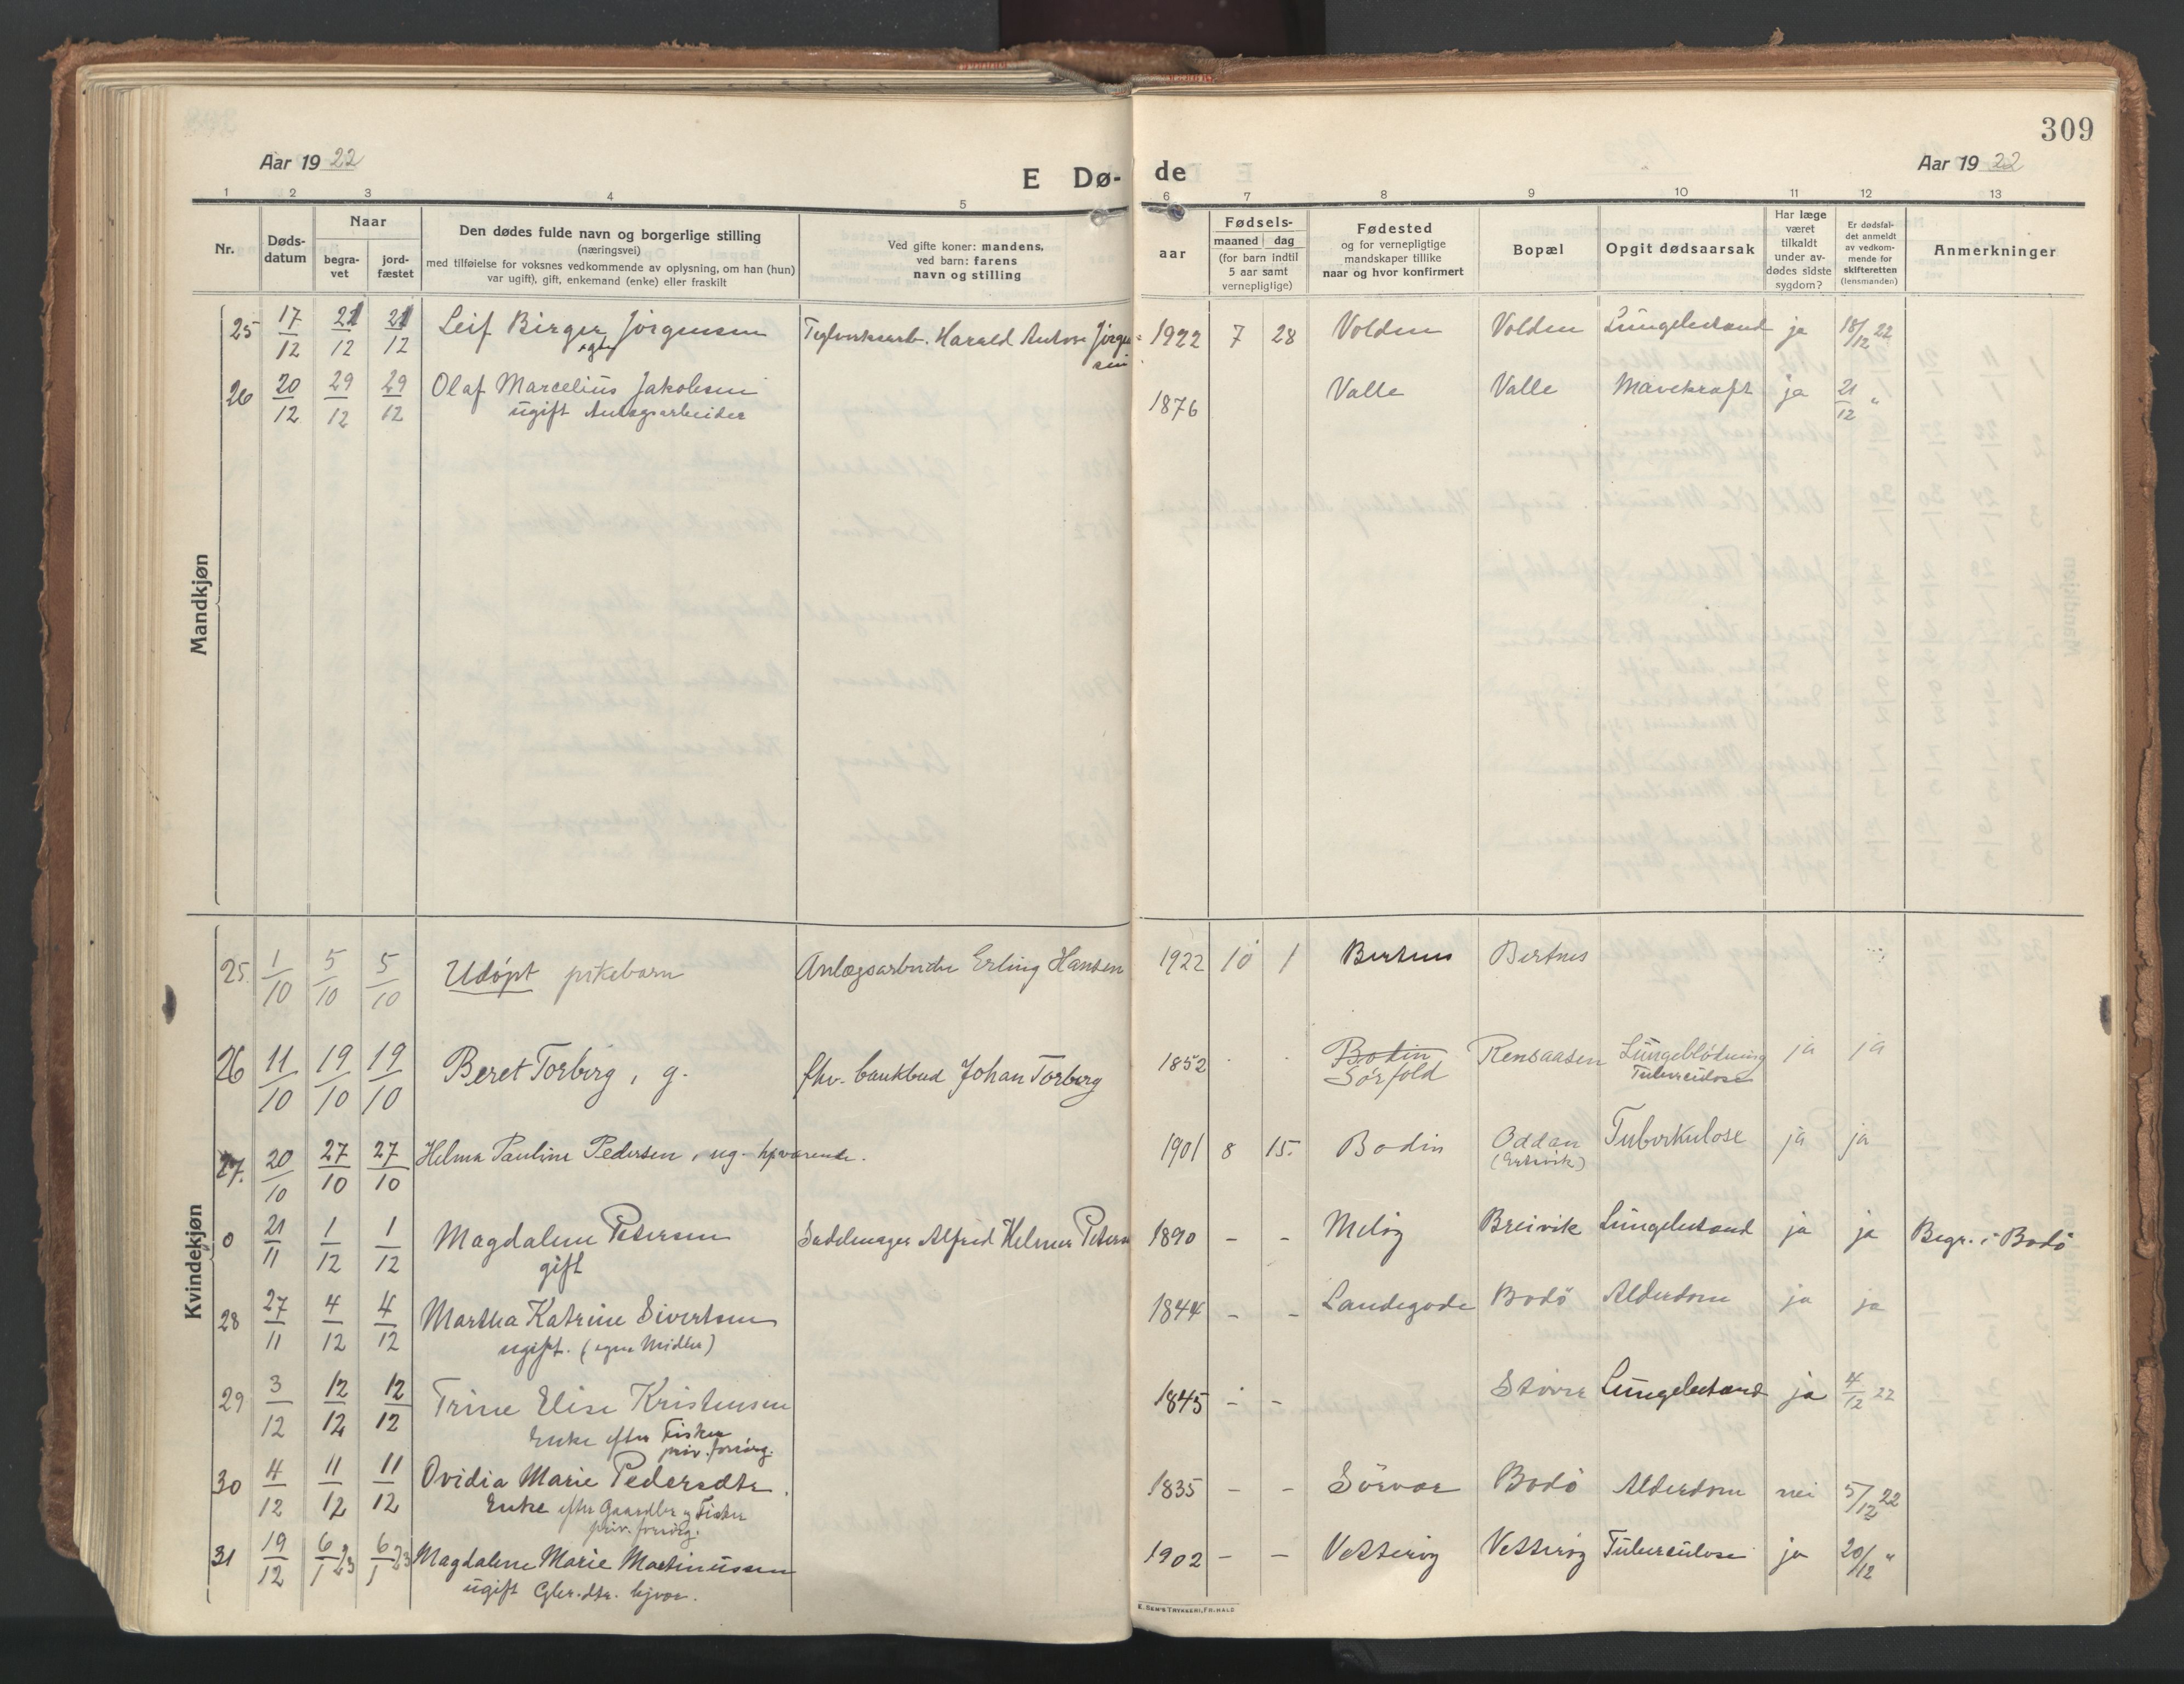 309
Aar 1922
E Dø-
de
Aar 1922
1 2 3 4 5 6 7 8 9 10 11 12 13
Nr.
Døds-
datum
Naar
begra-
vet
jord-
fæstet
Den dødes fulde navn og borgerlige stilling
(næringsvei)
med tilføielse for voksnes vedkommende av oplysning, om han (hun)
var ugift), gift, enkemand (enke) eller fraskilt
Ved gifte koner: mandens,
ved barn: farens
navn og stilling
aar
Fødsels-
maaned dag
(for barn indtil
5 aar samt
vernepligtige)
Fødested
og for vernepligtige
mandskaper tillike
naar og hvor konfirmert
Bopæl
Opgit dødsaarsak
Har læge
været
tilkaldt
under av-
dødes sidste
sygdom?
Er dødsfal-
det anmeldt
av vedkom-
mende for
skifteretten
(lensmanden)
Anmerkninger
Mandkjøn
25 17/12 21/12 21/12 Leif Birger Jørgensen Teglverksarb. Harald Anton Jørgen= 1922 7 28 Volden Volden Lungebetænd ja 18/12 22
egte sen
26 20/12 29/12 29/12 Olaf Marcelius Jakobsen 1876 Valle Valle Mavekræft ja 21/12 "
ugift Anlægsarbeider
Kvindekjøn
25. 1/10 5/10 5/10 Udøpt pikebarn Anlægsarbeider Erling Hansen 1922 10 1 Bertnes Bertnes
26 11/10 19/10 19/10 Beret Torberg, g. fhv. bankbud Johan Torberg 1852 Bodin Rensaasen Lungeblødning ja ja
Sørfold Tuberculose
27. 20/10 27/10 27/10 Helma Pauline Pedersen, ug. hjværende. 1901 8 15. Bodin Oddan Tuberkulose ja ja
0 21/11 1/12 1/12 Magdalena Petersen Sadelmager Alfred Helmer Petersen 1890 - - Meløy Breivik Lungebetænd ja ja Begr. i Bodø
gift
28 27/11 4/12 4/12 Martha Katrine Sivertsen 1844 - - Landegode Bodø Alderdom ja ja
ugift. (egne Midler)
29 3/12 12/12 12/12 Trine Elise Kristensen 1845 - - Støvre Lungebetænd ja 4/12 22
Enke efter Fisker
priv. forsørg.
30 4/12 11/12 11/12 Ovidia Marie Pedersdtr. 1835 - - Sørvær Bodø Alderdom nei 5/12 22
Enke efter Gaardbr og Fisker
priv. forsørg.
31 19/12 6/1 23 6/1 23 Magdalene Marie Martinussen 1902 - - Vesterøy Vesterøy Tuberculose ja 20/12 "
ugift Gbr. dtr. hjvær.
E. SEM'S TRYKKERI, FR.HALD